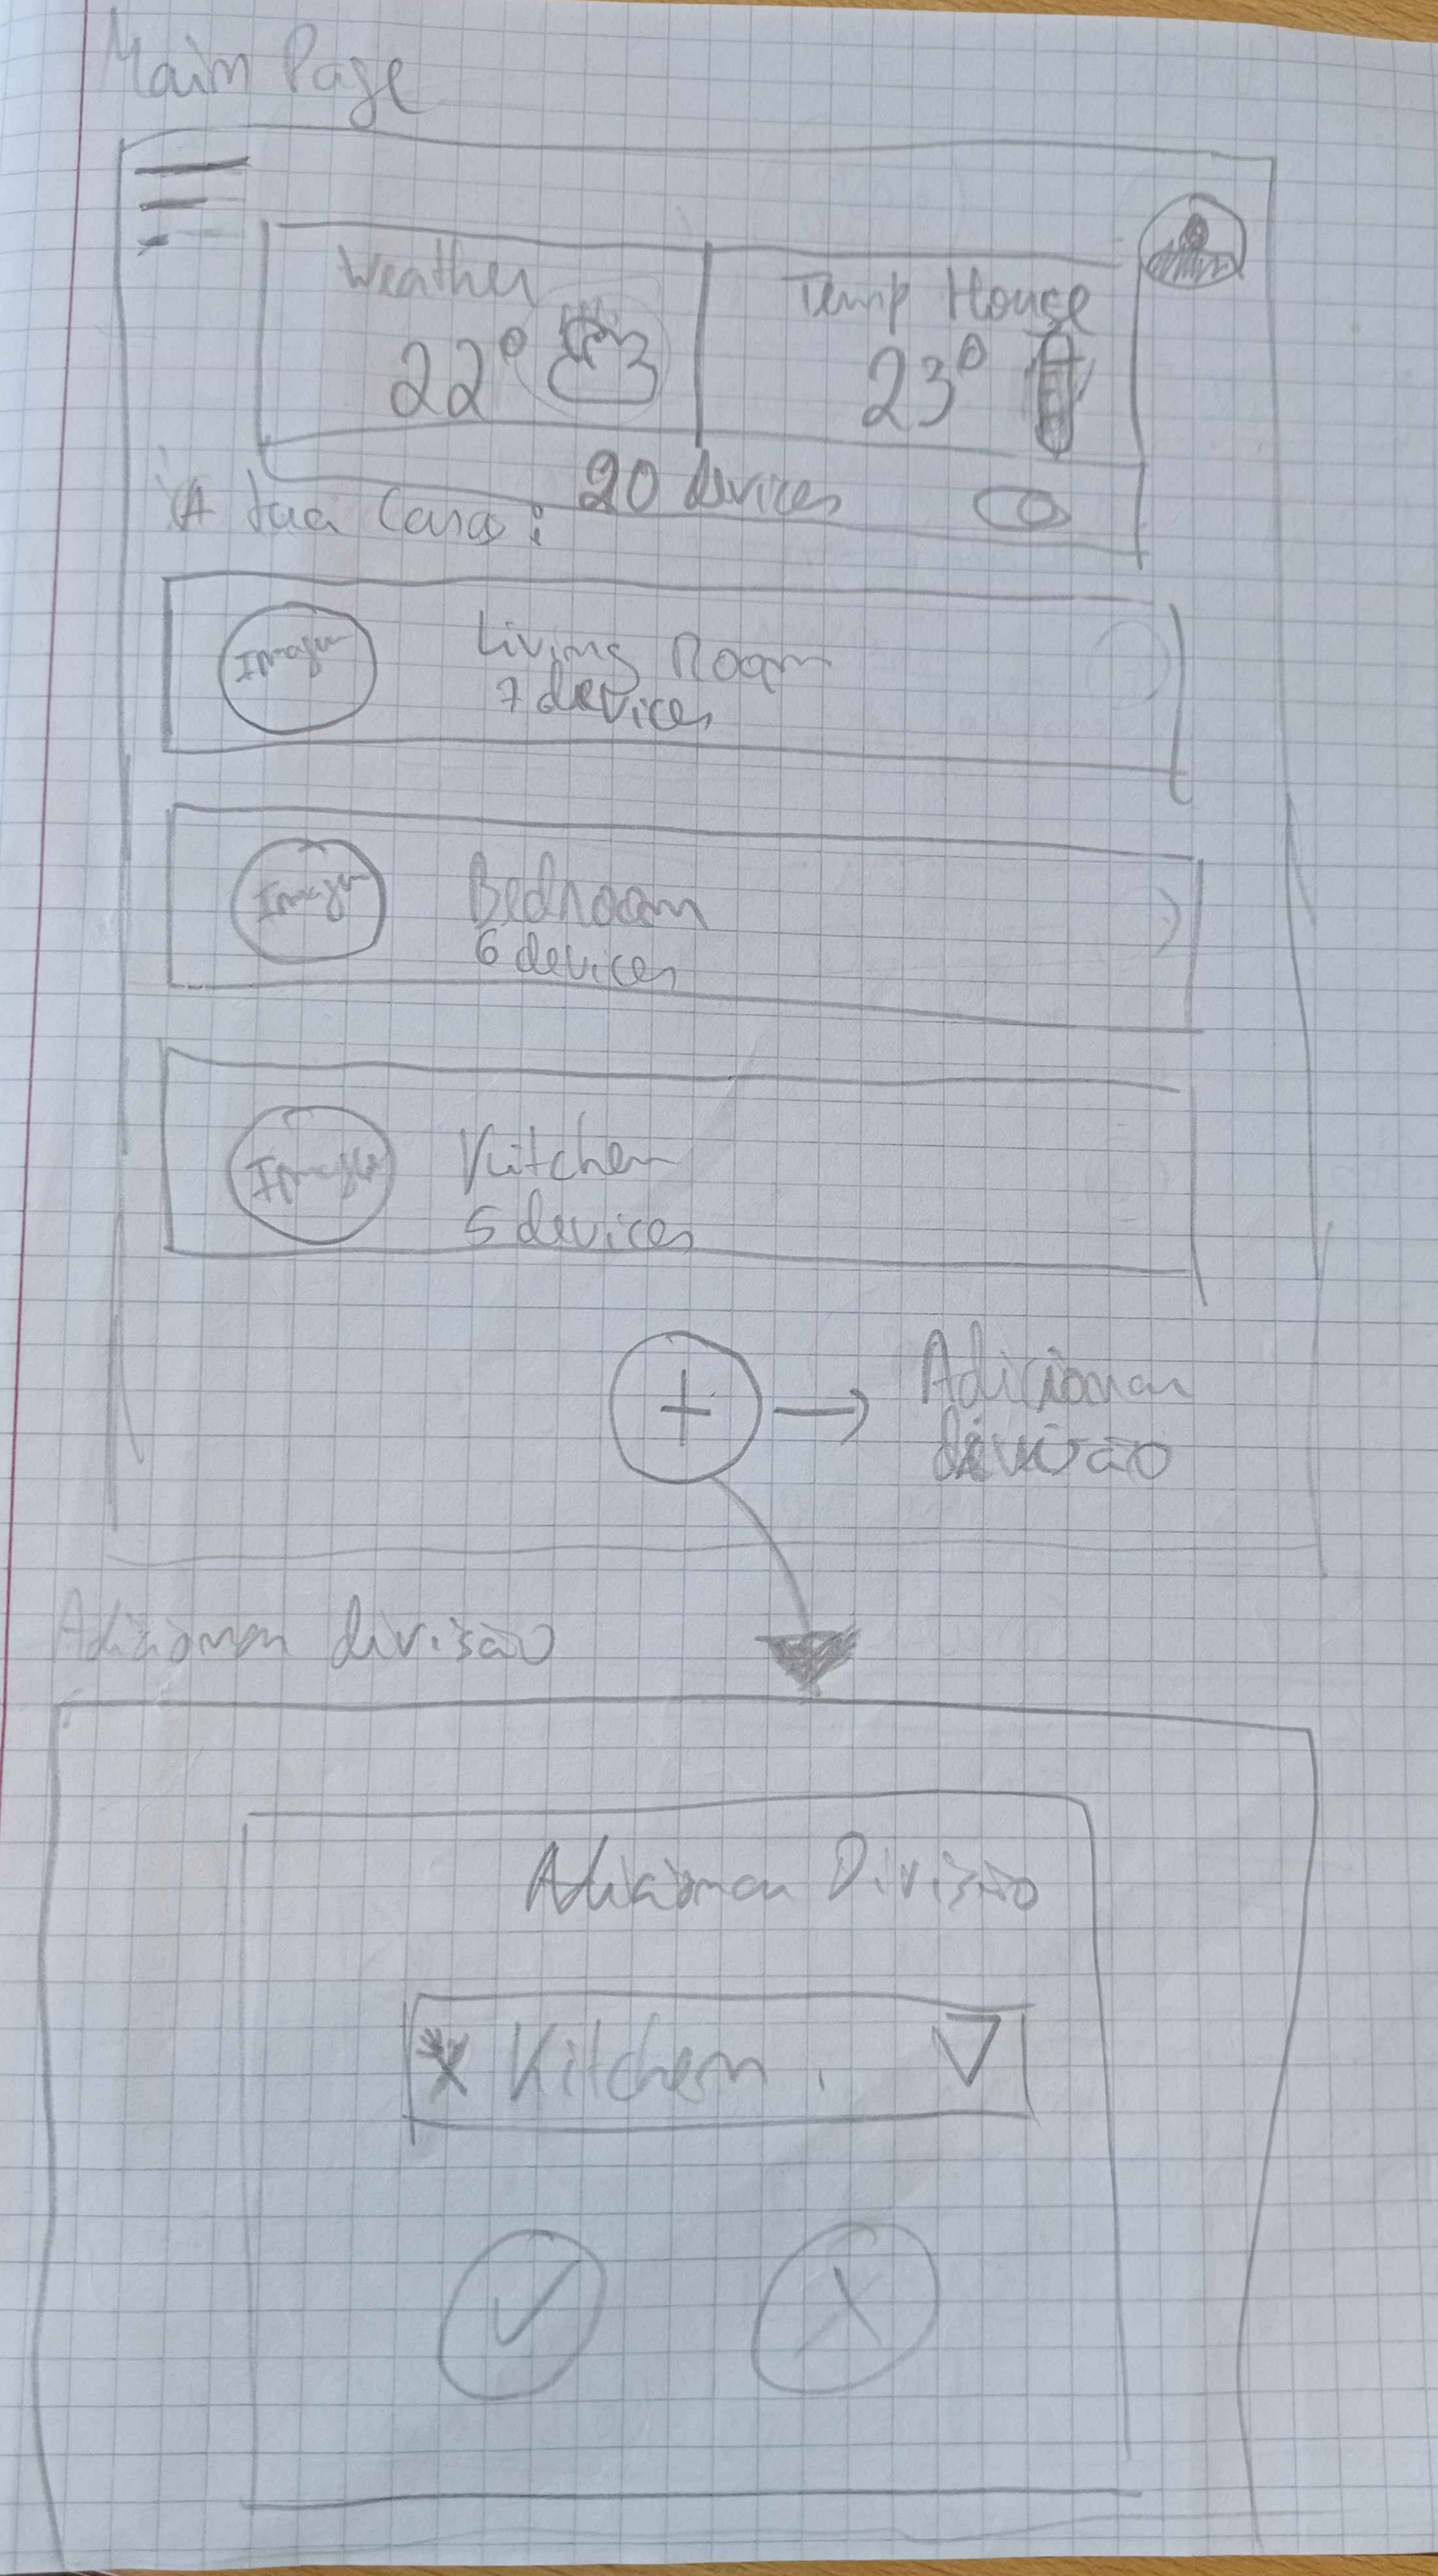 Main Page
Weather
22°
Temp House
23°
20 devices
A tua Casa:
Imagem
Living Room
7 devices
Imagem
Bedroom
6 devices
Imagem
Kitchen
5 devices
+ → Adicionar
divisão
Adicionar divisão
Adicionar Divisão
Kitchen